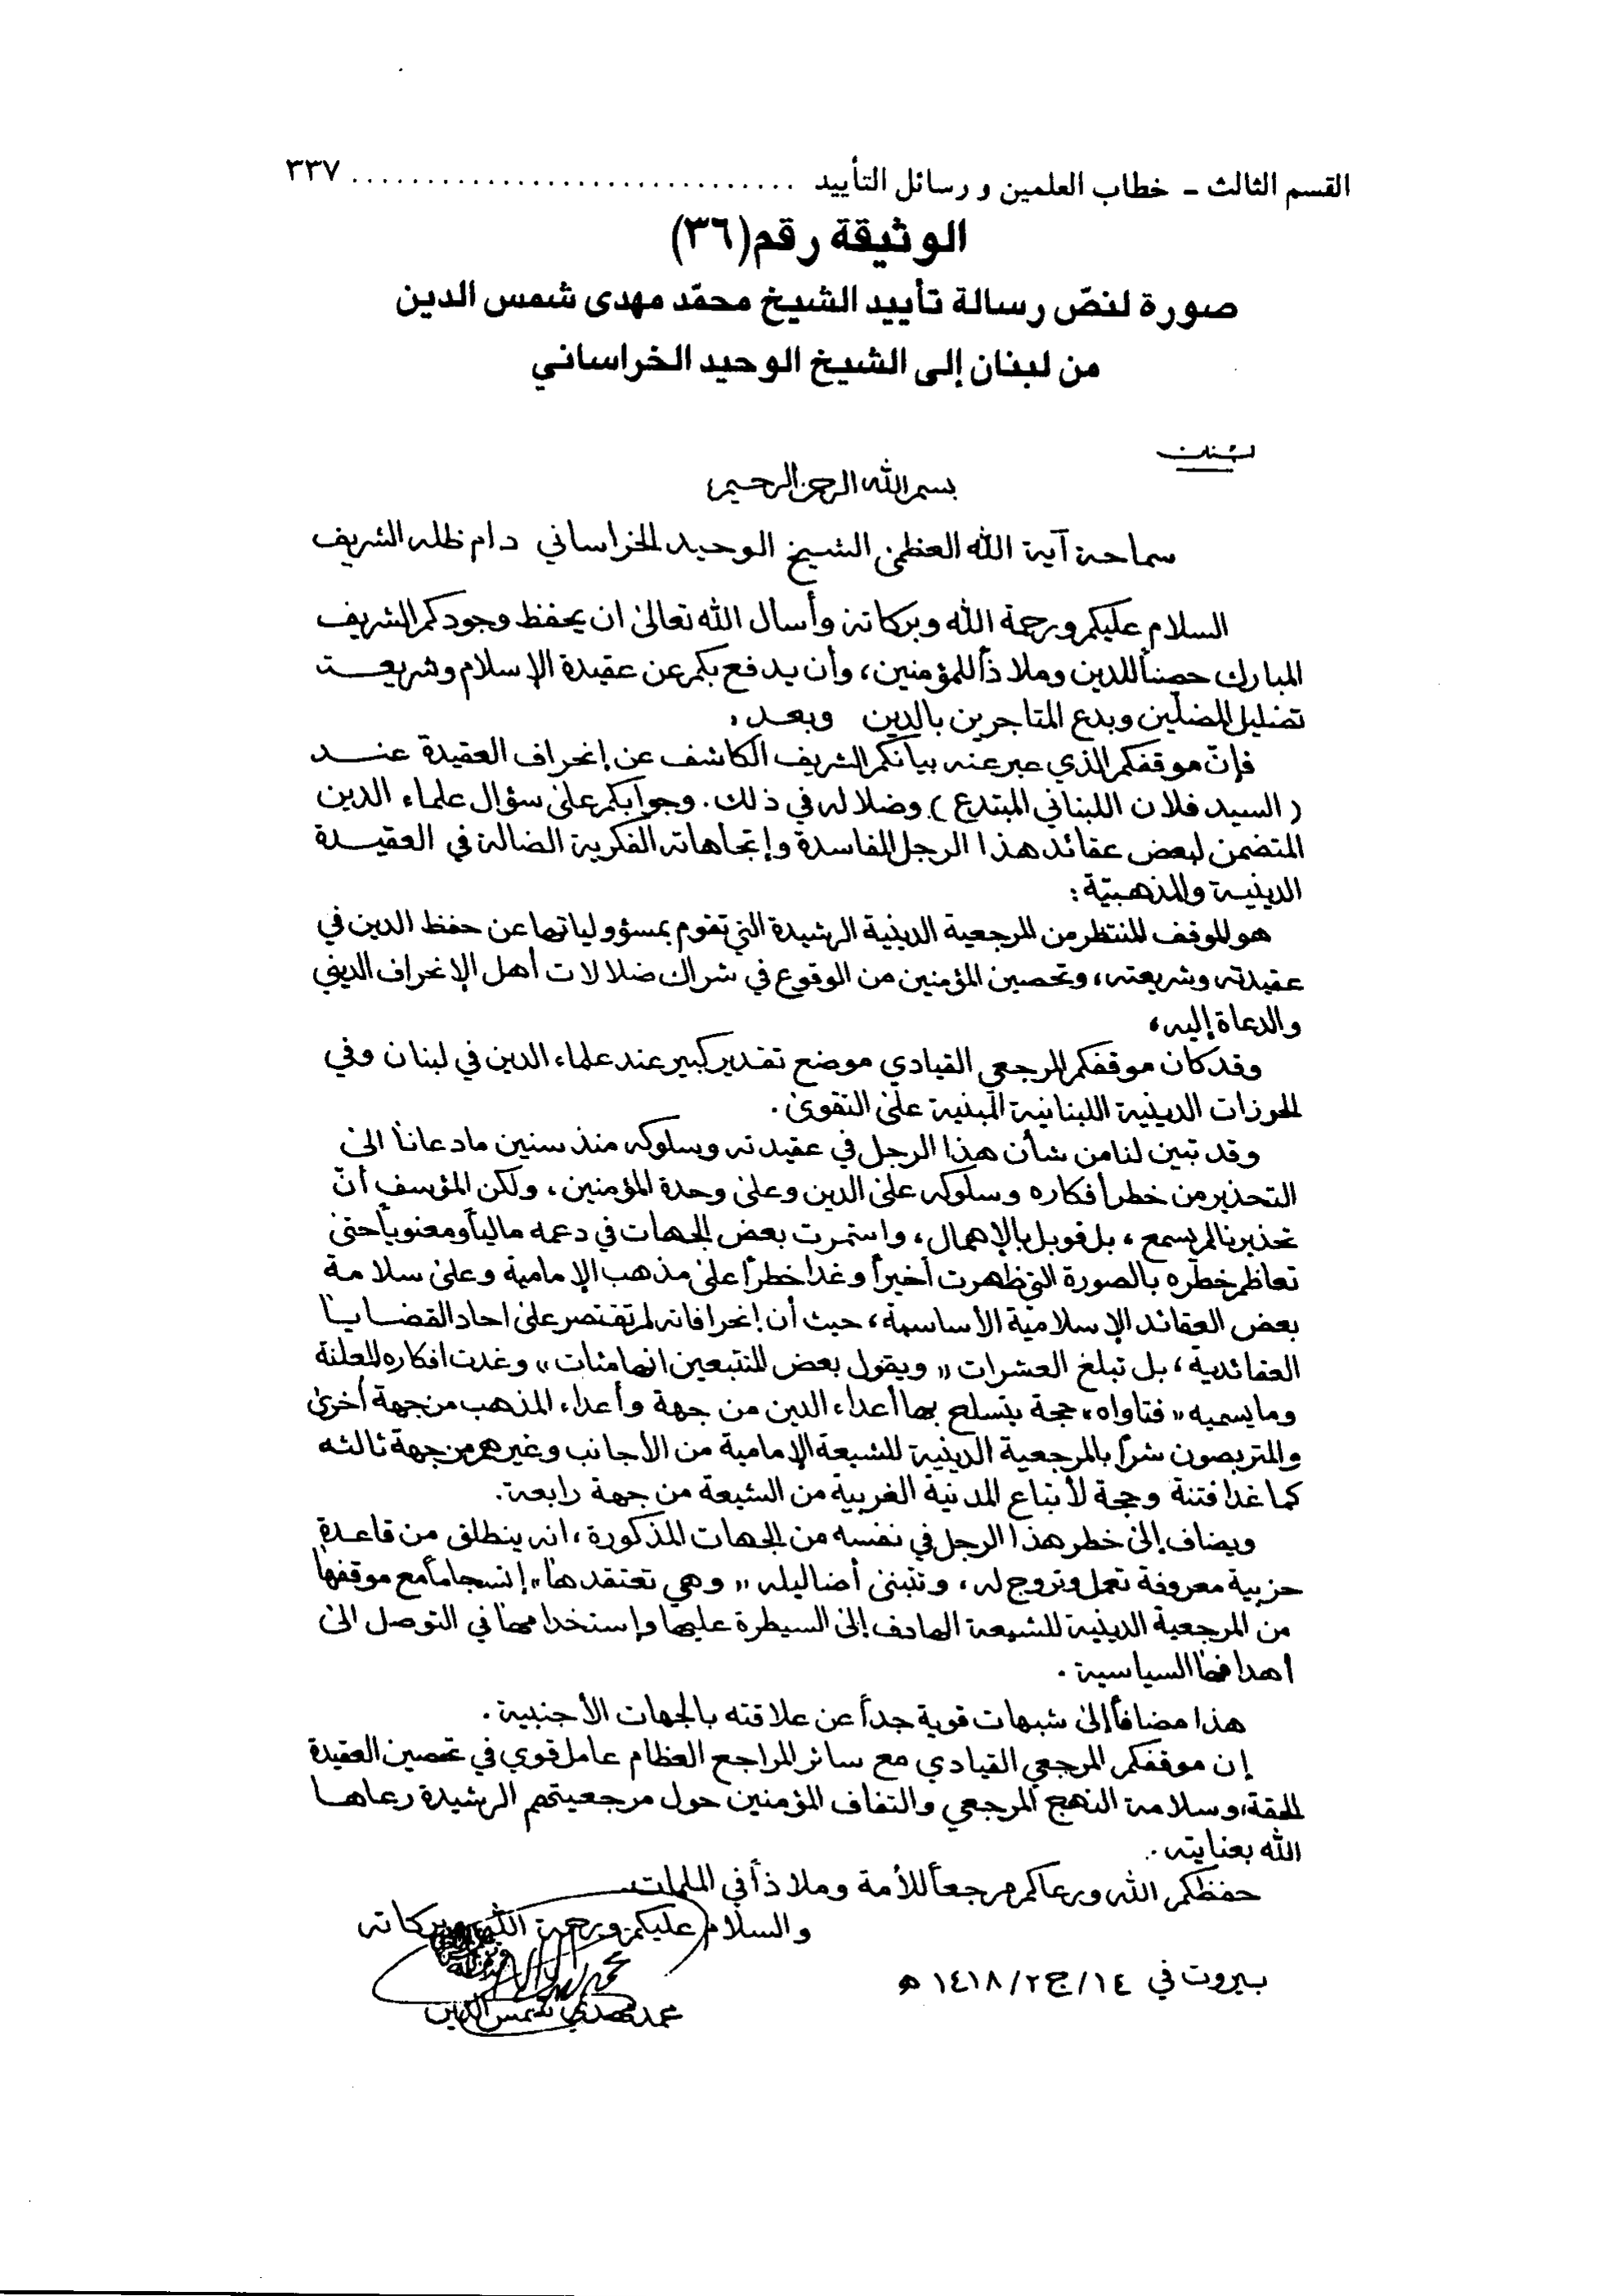 القسم الثالث - خطاب العلمين و رسائل التأييد .............................. ٣٣٧
الوثيقة رقم (٣٦)
صورة لنصّ رسالة تأييد الشيخ محمّد مهدى شمس الدين
من لبنان إلى الشيخ الوحيد الخراساني
لبنان
بسم الله الرحمن الرحيم
سماحة آية الله العظمى الشيخ الوحيد الخراساني دام ظله الشريف
السلام عليكم ورحمة الله وبركاته وأسأل الله تعالى ان يحفظ وجودكم الشريف
المبارك حصناً للدين وملاذاً للمؤمنين، وأن يدفع بكم عن عقيدة الإسلام وشريعته
تضليل المضلّين وبدع المتاجرين بالدين وبعد،
فإنّ موقفكم الذي عبر عنه بيانكم الشريف الكاشف عن إنحراف العقيدة عند
(السيد فلان اللبناني المبتدع) وضلاله في ذلك. وجوابكم على سؤال علماء الدين
المتضمن لبعض عقائد هذا الرجل الفاسدة وإتجاهاته الفكرية الضالة في العقيدة
الدينية والمذهبيّة:
هو الموقف المنتظر من المرجعية الدينية الرشيدة التي تقوم بمسؤولياتها عن حفظ الدين في
عقيدته وشريعته، وتحصين المؤمنين من الوقوع في شراك ضلالات أهل الإنحراف الديني
والدعاة إليه،
وقد كان موقفكم المرجعي القيادي موضع تقدير كبير عند علماء الدين في لبنان وفي
الحوزات الدينية اللبنانية المبنية على التقوى.
وقد تبين لنا من شأن هذا الرجل في عقيدته وسلوكه منذ سنين ما دعانا الى
التحذير من خطر أفكاره وسلوكه على الدين وعلى وحدة المؤمنين، ولكن المؤسف أنّ
تحذيرنا لم يسمع، بل قوبل بالإهمال، واستمرت بعض الجهات في دعمه مالياً ومعنوياً حتى
تعاظم خطره بالصورة التي ظهرت أخيراً وغدا خطراً على مذهب الإمامية وعلى سلامة
بعض العقائد الإسلاميّة الأساسية، حيث أن إنحرافاته لم تقتصر على احاد القضايا
العقائدية، بل تبلغ العشرات «ويقول بعض المتتبعين انها مئات» وغدت افكاره المعلنة
وما يسميه «فتاواه» حجة يتسلح بها أعداء الدين من جهة وأعداء المذهب من جهة أخرى
والمتربصون شراً بالمرجعية الدينية للشيعة الإمامية من الأجانب وغيرهم من جهة ثالثة
كما غدا فتنة وحجة لأتباع المدنية الغربية من الشيعة من جهة رابعة.
ويضاف إلى خطر هذا الرجل في نفسه من الجهات المذكورة، انه ينطلق من قاعدة
حزبية معروفة تعمل وتروج له، وتتبنى أضاليله «وهي تعتقدها» إنسجاماً مع موقفها
من المرجعية الدينية للشيعة الهادف إلى السيطرة عليها وإستخدامها في التوصل الى
أهدافها السياسية.
هذا مضافاً إلى شبهات قوية جداً عن علاقته بالجهات الأجنبية.
إن موقفكم المرجعي القيادي مع سائر المراجع العظام عامل قوي في تحصين العقيدة
الحقة، وسلامة النهج المرجعي والتفاف المؤمنين حول مرجعيتهم الرشيدة رعاها
الله بعنايته.
حفظكم الله ورعاكم مرجعاً للأمة وملاذاً في الملمات.
والسلام عليكم ورحمة الله وبركاته
بيروت في ١٤/ج٢/١٤١٨ ه
محمد مهدي شمس الدين